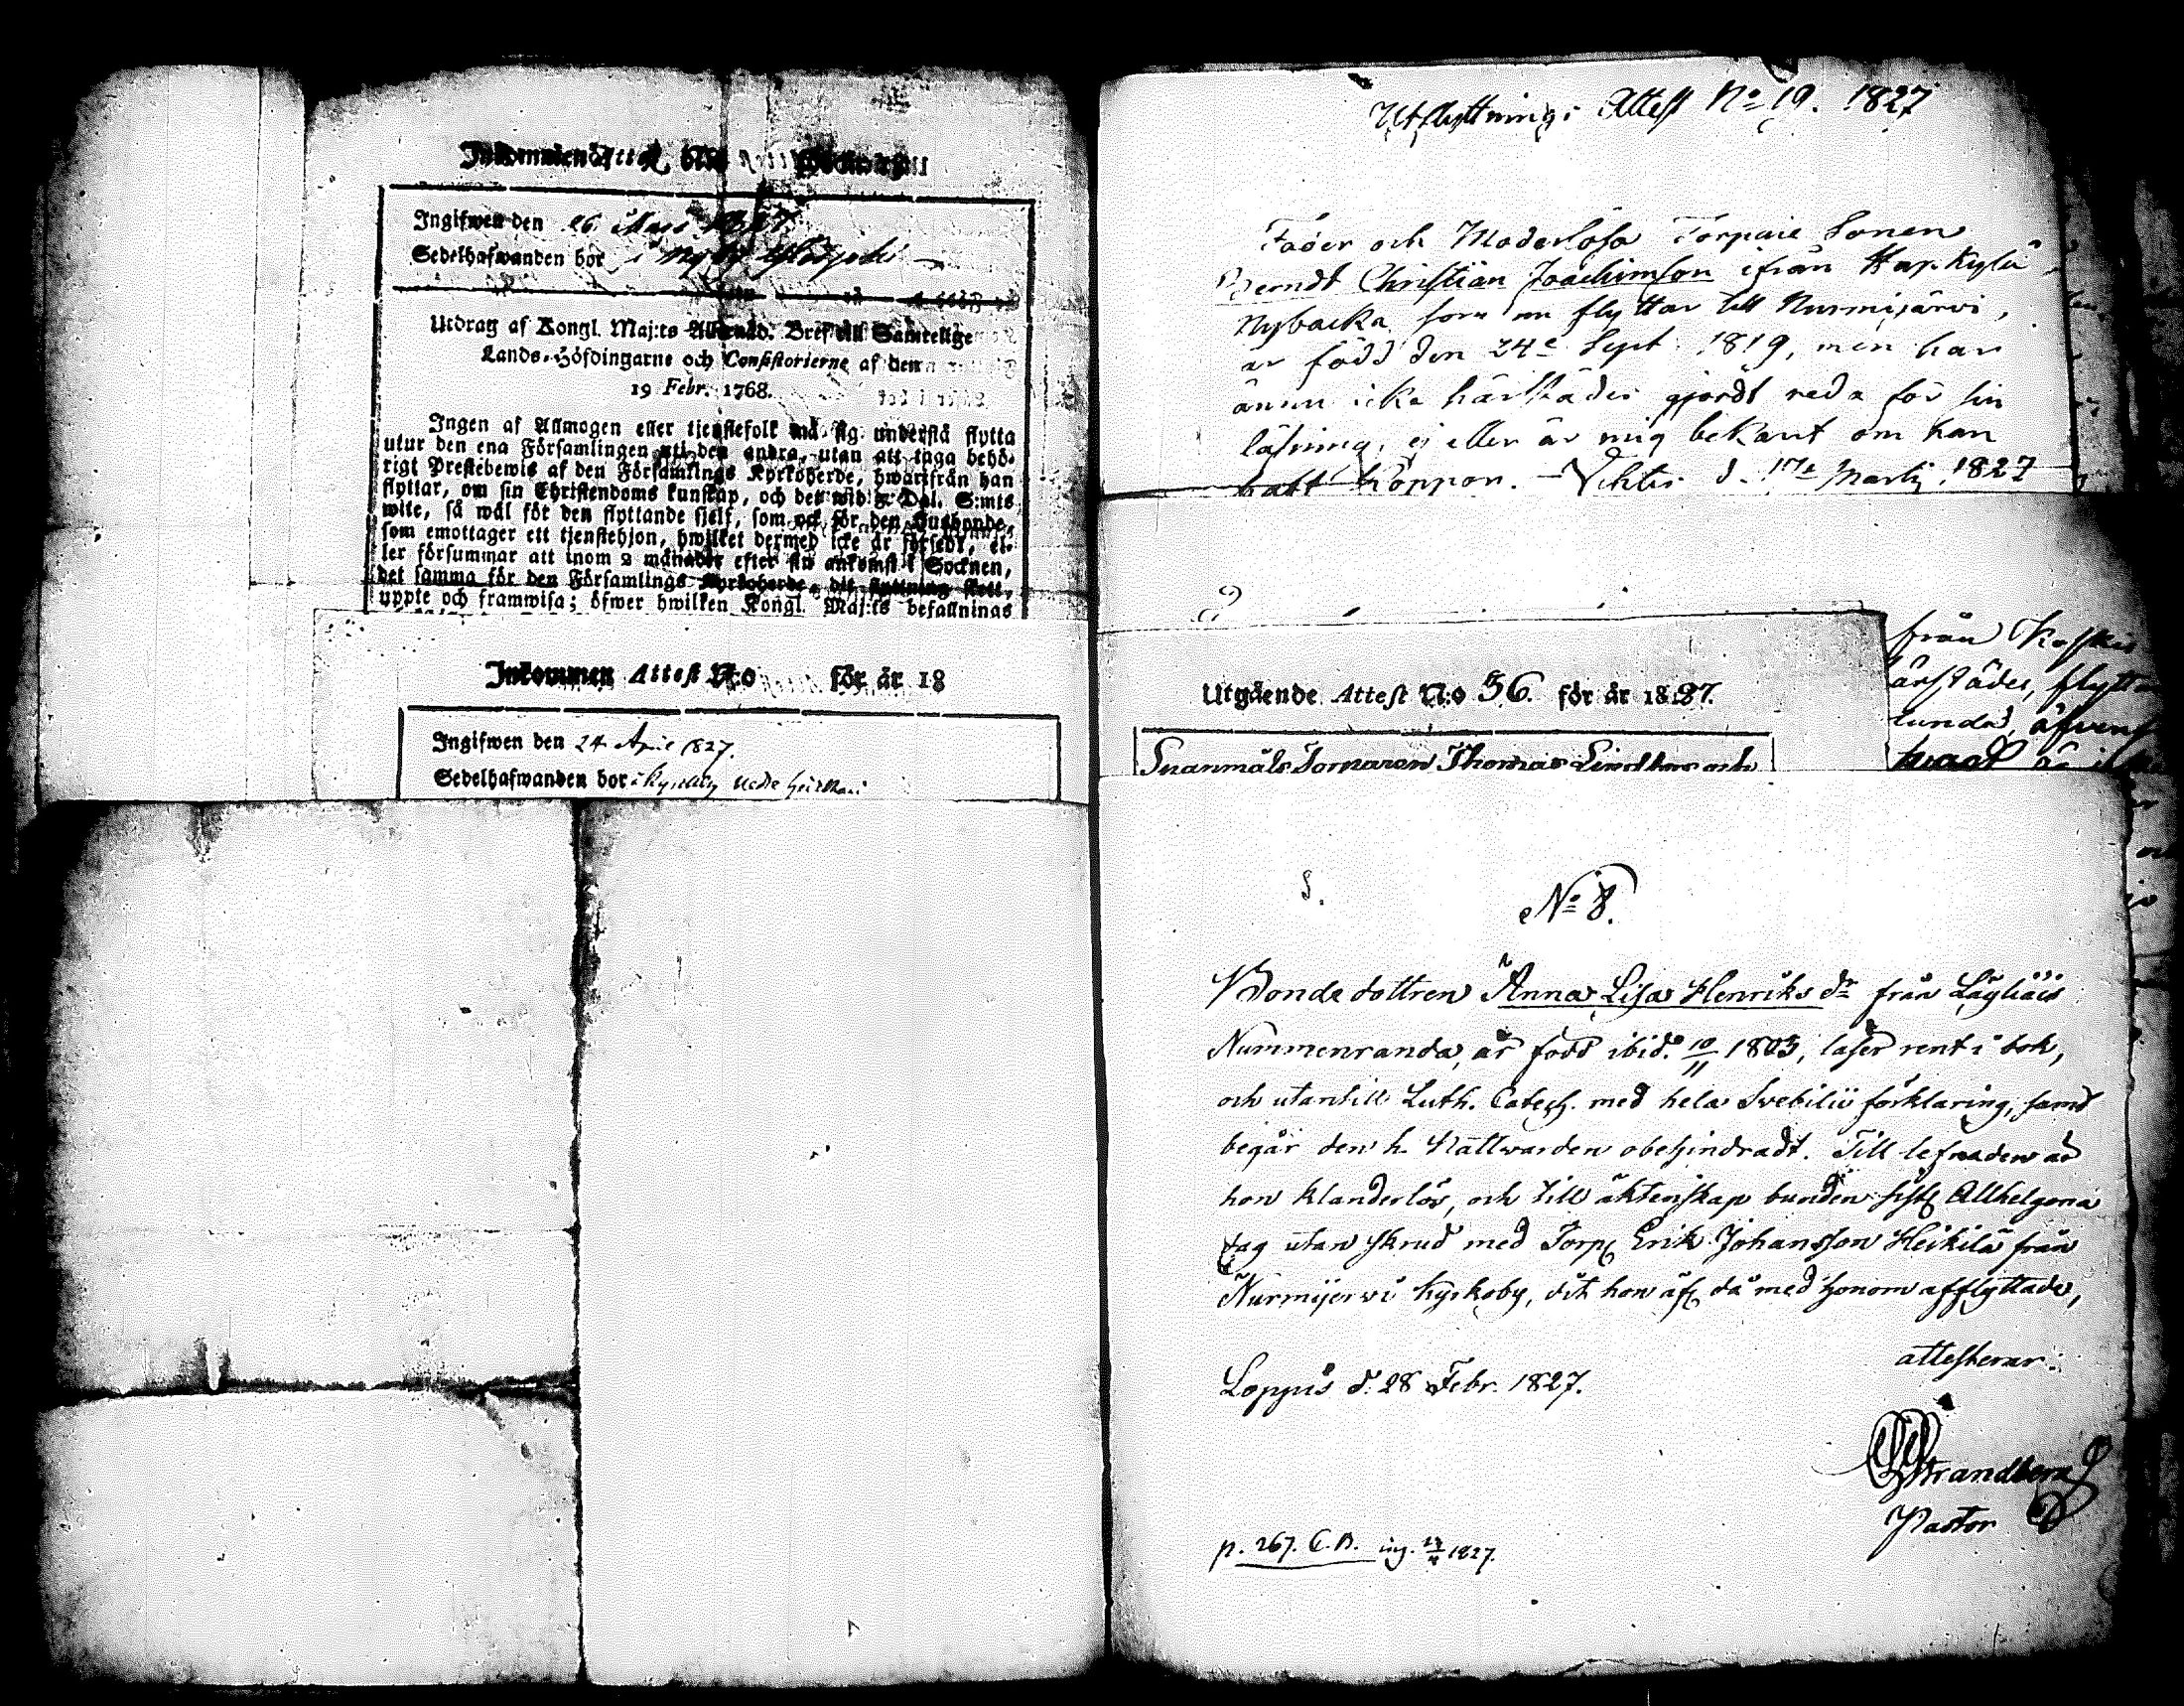 Inkommen Attest
Ingifwen den 26 Mars 1827.
Sedelhafwanden bor i
Utdrag af Kongl. Maj:ts Allernåd. Bref till Samtelige
Lands-Höfdingarne och Consistorierne af den
19 Febr. 1768.
Ingen af Allmogen eller tjenstefolk må sig understå flytta
utur den ena Församlingen uti den andra, utan att taga behö-
rigt Prestebewis af den Församlings Kyrkoherde, hwarifrån han
flyttar, om sin Christendoms kunskap, och det wid 2:Dal. S:mts
wite, så wäl för den flyttande sjelf, som ock för den Husbonde,
som emottager ett tjenstehjon, hwilket dermed icke är försedt, el-
ler försummar att inom 2 månader efter sin ankomst i Socknen,
det samma för den Församlings Kyrkoherde, dit flyttning skett,
uppte och framwisa; öfwer hwilken Kongl. Maj:ts befallnings
Inkommen Attest N:o för år 18
Ingifwen den 24 April 1827.
Sedelhafwanden bor i Kyrkoby
Utflyttnings Attest No 19. 1827
Fader och Moderlösa Torpare Sonen
Berndt Christian Joachimson ifrån Haapkylä
Nybacka som nu flyttar till Nurmijärvi,
är född den 24e Sept. 1819, men har
ännu icke härstädes gjordt reda för sin
läsning, ej eller är mig bekant om han
haft Koppor. – Vichtis d. 17e Martij 1827
Utgående Attest N:o 56. för år 1827.
Thomas och
från
ärstädes, flytta
lunda, äfvens
No 8.
Bonde dottren Anna Lisa Henriks dr från Läyliäis
Nummenranda, är född ibid. 10/11 1803, läser rent i bok,
och utantill Luth. Catech. med hela Svebilii förklaring, samt
begår den h. Nattwarden obehindradt. Till lefnaden är
hon klanderlös, och till äktenskap bunden sistl. Allhelgona
dag utan skrud med Torp. Erik Johansson Heikilä från
Nurmijerwi Kyrkoby, dit hon äf. då med honom afflyttade,
attesterar.
Loppis d. 28 Febr. 1827.
Strandberg
Pastor
p. 267. C.B. ing. 1827.